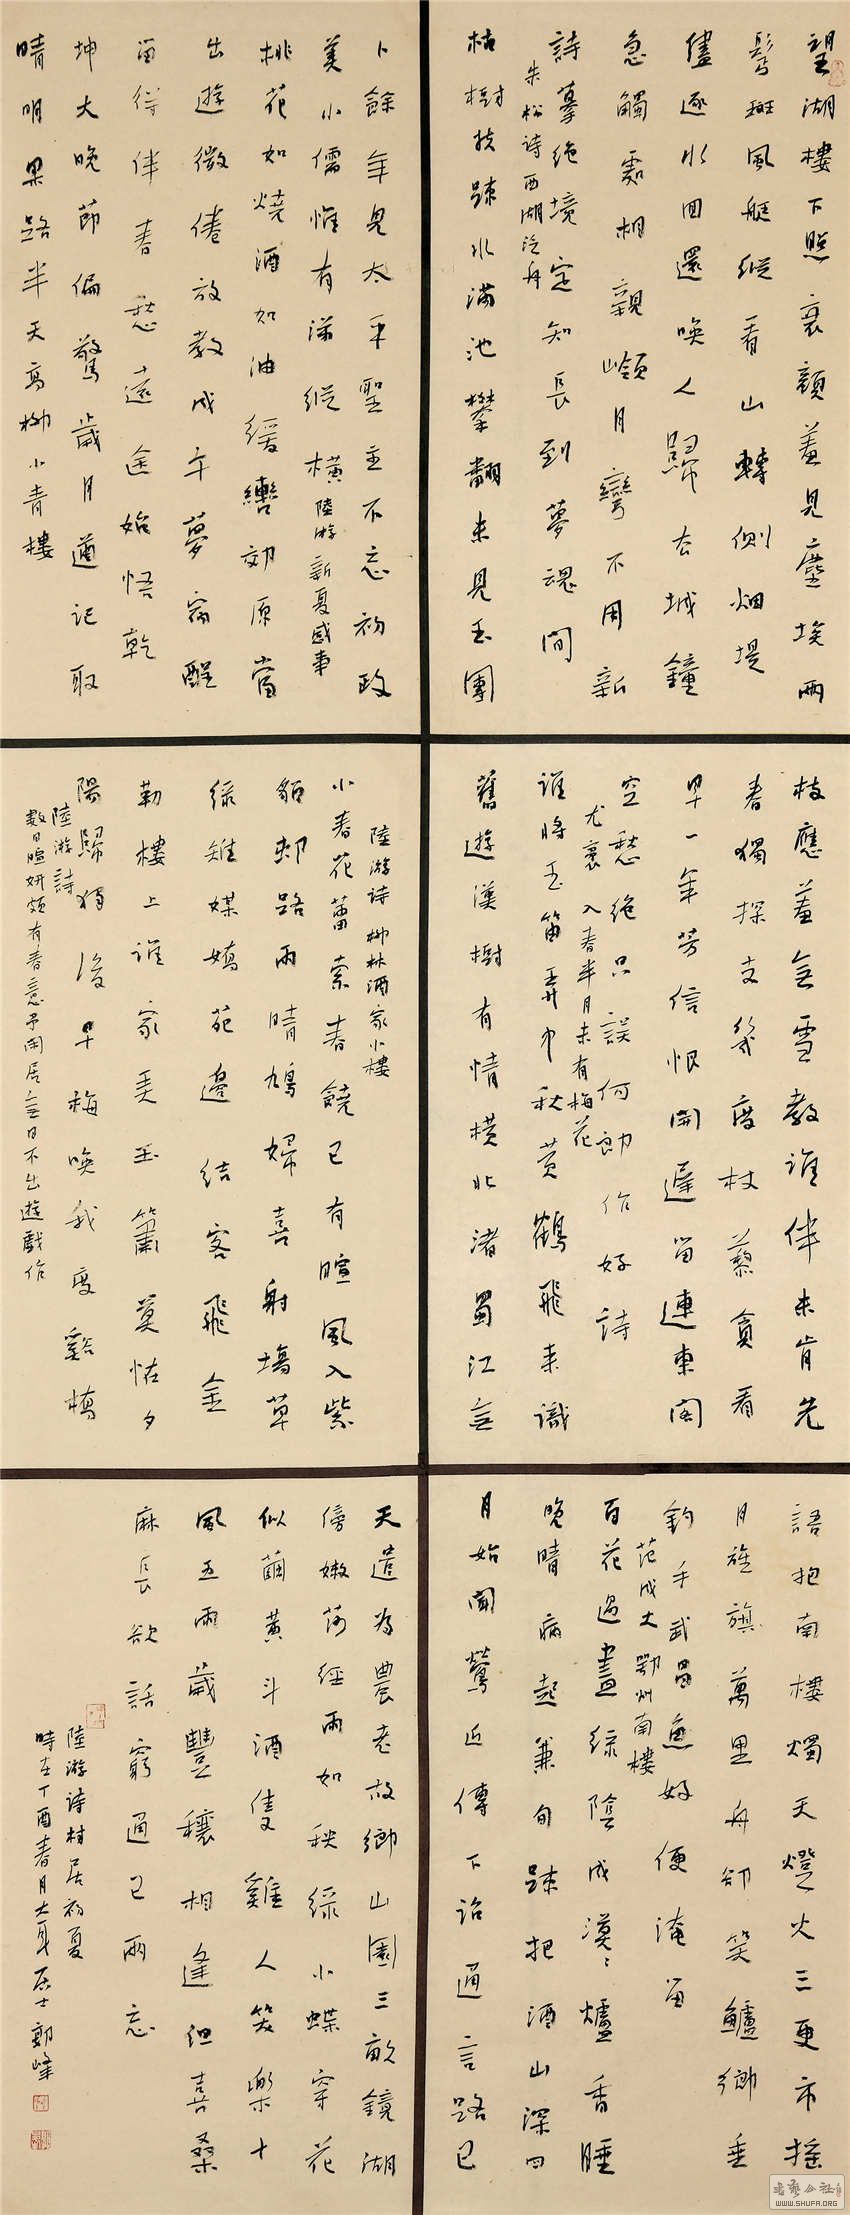 望湖樓下照衰顏羞見塵埃兩
鬢斑風艇縱看山轉側烟堤
儘逐水回還喚人歸去城鐘
急觸處相親嶺月彎不用新
詩摹絕境定知長到夢魂間
朱松詩西湖泛舟
枯樹扶疎水滿池攀翻未見玉團
枝應羞無雪教誰伴未肯先
春獨探支幾度杖藜貪看
早一年芳信恨開遲留連東閣
空愁絕只誤何郎作好詩
尤袤入春半月未有梅花
誰將玉笛弄中秋黃鶴飛來識
舊遊漢樹有情橫北渚蜀江無
語抱南樓燭天燈火三更市搖
月旌旗萬里舟卻笑鱸鄉垂
釣手武昌魚好便淹留
范成大鄂州南樓
百花過盡綠陰成漠〻爐香睡
晚晴病起兼旬疎把酒山深四
月始聞鶯近傳下詔通言路已
卜餘年見太平聖主不忘初政
美小儒惟有涕縱橫陸游新夏感事
桃花如燒酒如油緩轡郊原當
出遊微倦放教成午夢宿酲
留得伴春愁遠途始悟乾
坤大晚節偏驚歲月遒記取
晴明果路半天高柳小青樓
陸游詩柳林酒家小樓
小春花蕾索春饒已有暄風入紫
貂郊路雨晴鳩婦喜射場草
綠雉媒嬌苑邊結客飛金
勒樓上誰家弄玉簫莫怪夕
陽歸獨後早梅喚我度谿橋
陸游詩
數日暄妍頗有春意予閑居無日不出遊戲作
天遣為農老故鄉山園三畝鏡湖
傍嫩莎經雨如秧綠小蝶穿花
似繭黃斗酒隻雞人笑樂十
風五雨歲豐穰相逢但喜桑
麻長欲話窮通已兩忘
陸游詩村居初夏
時在丁酉春月大耳居士郭峰
書藝公社
WWW.SHUFA.ORG